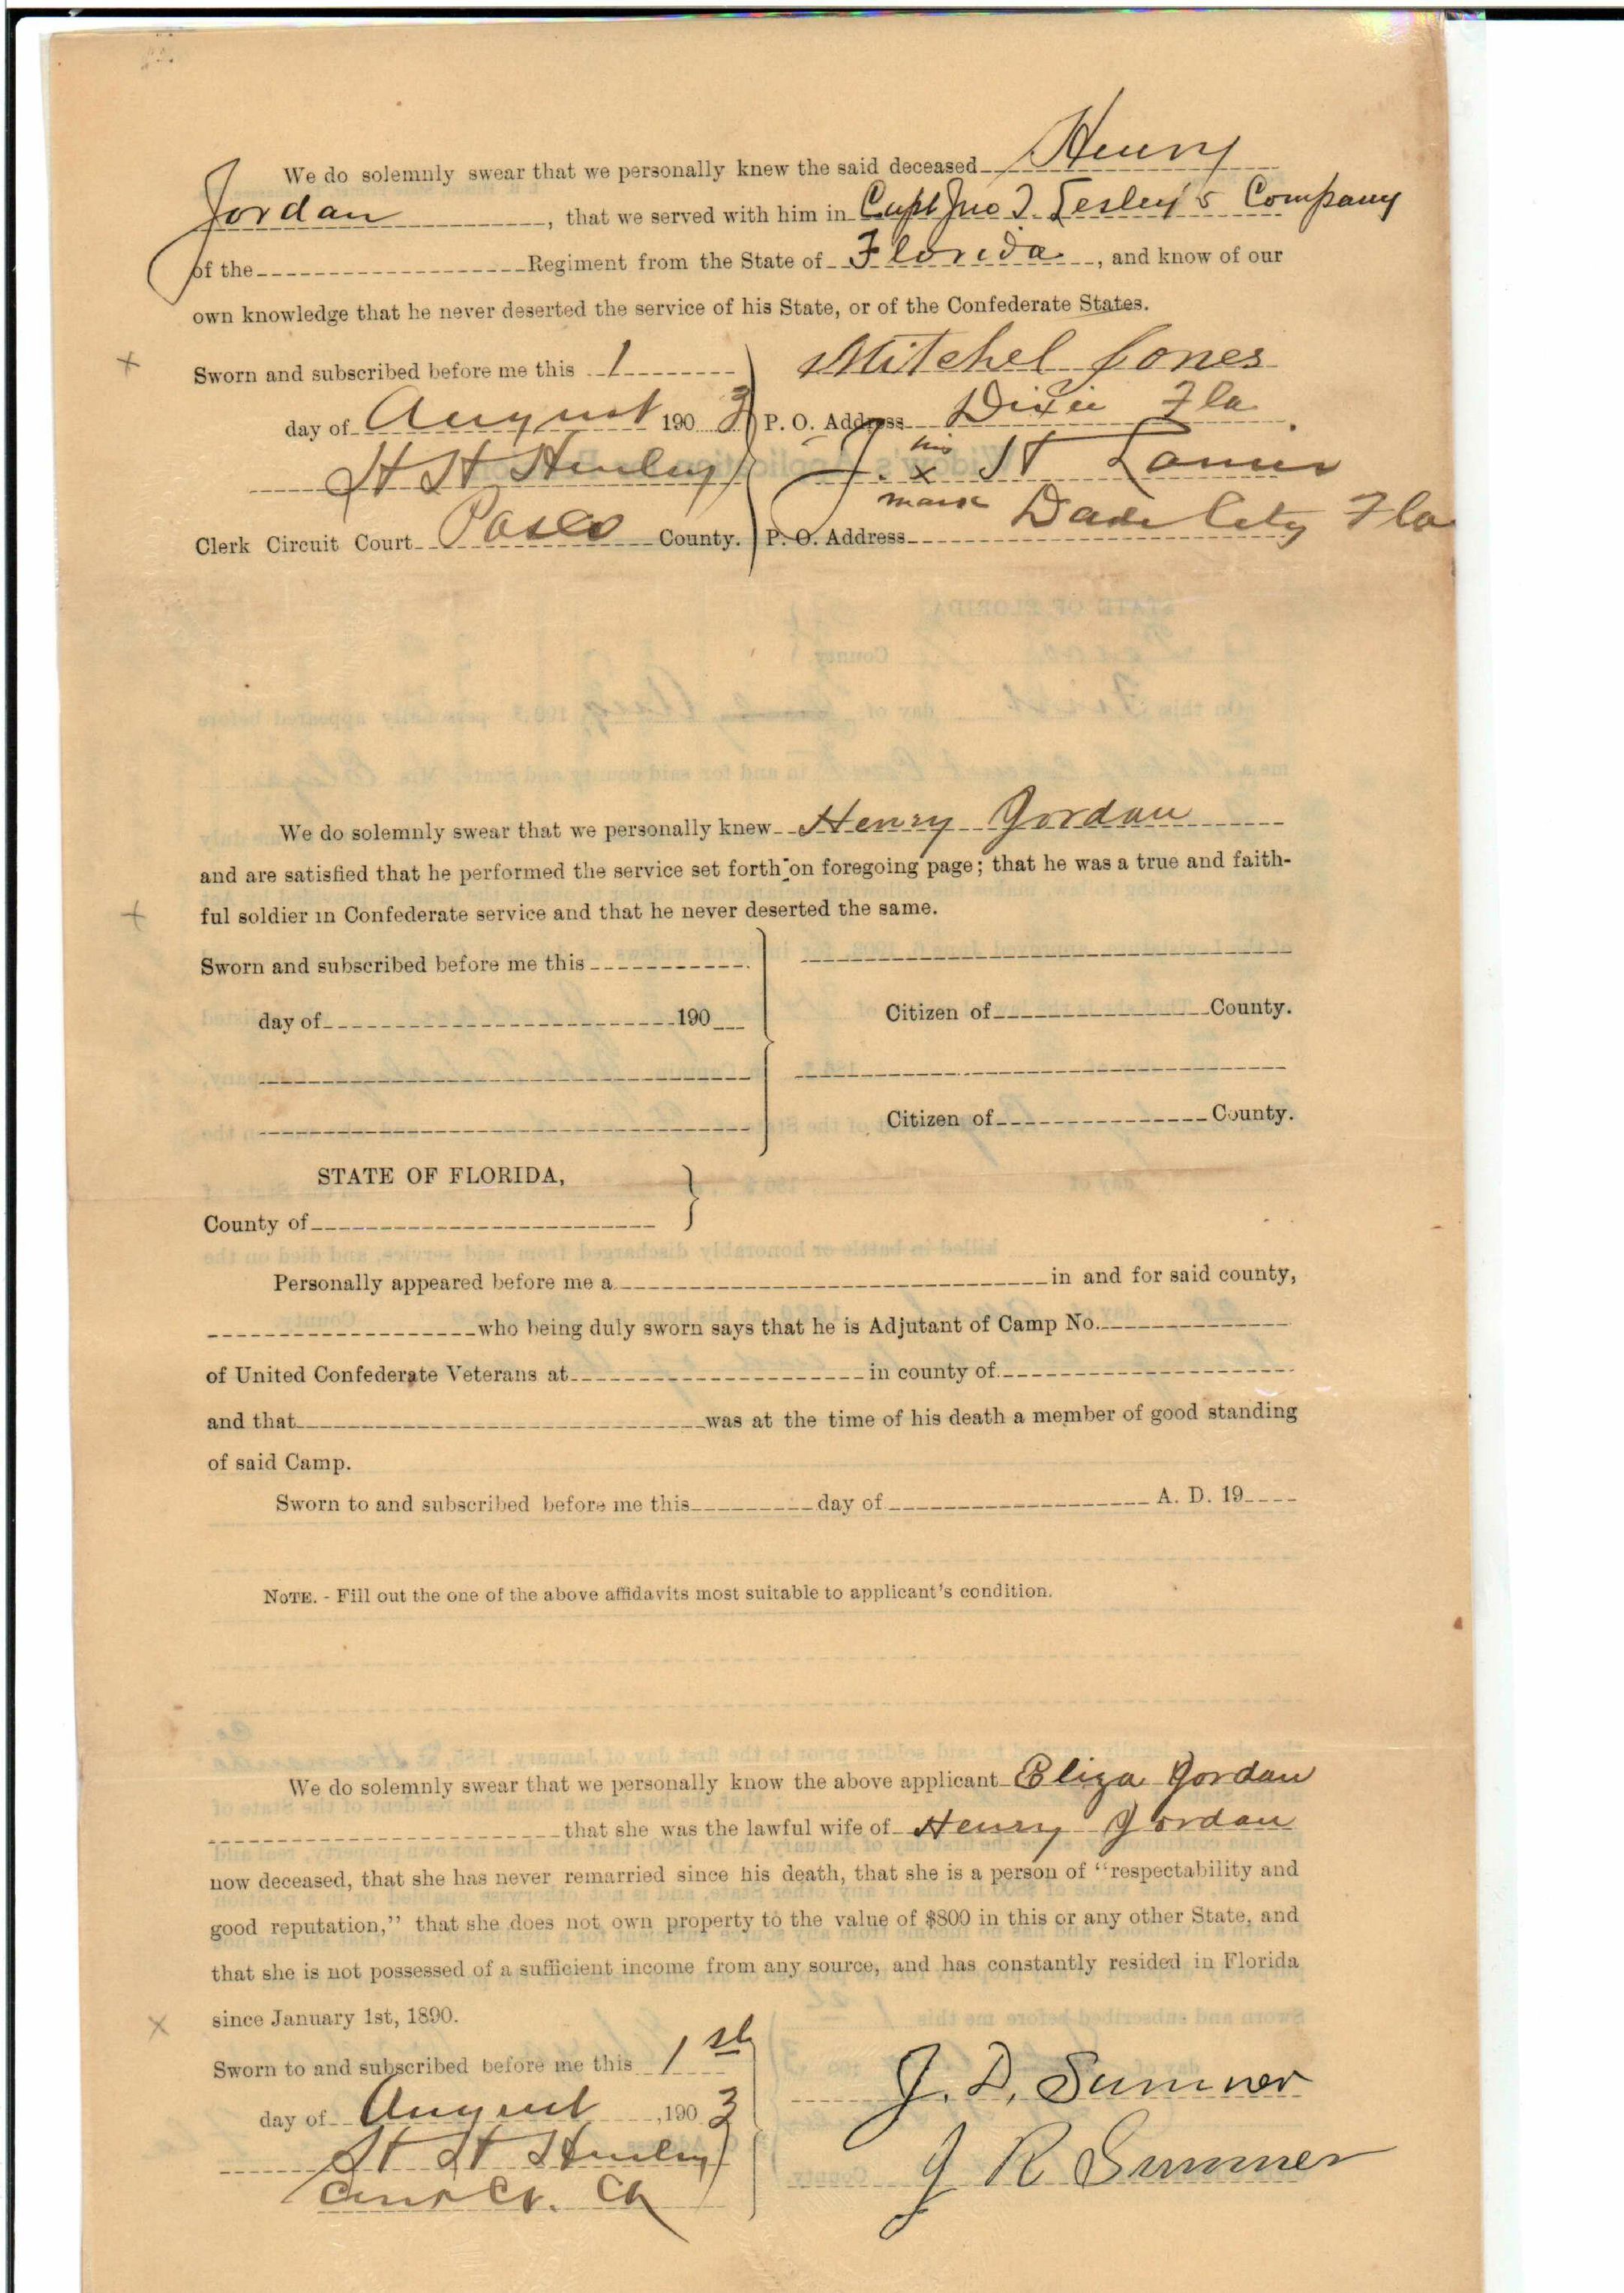 We do solemnly swear that we personally knew the said deceased Henry
Jordan, that we served with him in Capt Jno T. Lesley's Company
of the Regiment from the State of Florida, and know of our
own knowledge that he never deserted the service of his State, or of the Confederate States.
Sworn and subscribed before me this 1
Mitchel Jones
day of August 1903
P. O. Address Dixie Fla.
H H Henley
J. his x mark H
Clerk Circuit Court Pasco County.
P. O. Address Dade City Fla
We do solemnly swear that we personally knew Henry Jordan
and are satisfied that he performed the service set forth on foregoing page; that he was a true and faith-
ful soldier in Confederate service and that he never deserted the same.
Sworn and subscribed before me this
day of 190
Citizen of County.
Citizen of County.
STATE OF FLORIDA,
County of
Personally appeared before me a in and for said county,
who being duly sworn says that he is Adjutant of Camp No.
of United Confederate Veterans at in county of
and that was at the time of his death a member of good standing
of said Camp.
Sworn to and subscribed before me this day of A. D. 19
NOTE. - Fill out the one of the above affidavits most suitable to applicant's condition.
We do solemnly swear that we personally know the above applicant Eliza Jordan
that she was the lawful wife of Henry Jordan
now deceased, that she has never remarried since his death, that she is a person of "respectability and
good reputation," that she does not own property to the value of $800 in this or any other State, and
that she is not possessed of a sufficient income from any source, and has constantly resided in Florida
since January 1st, 1890.
Sworn to and subscribed before me this 1st
day of August, 1903
J. D. Sumner
H H Henley
J R Sumner